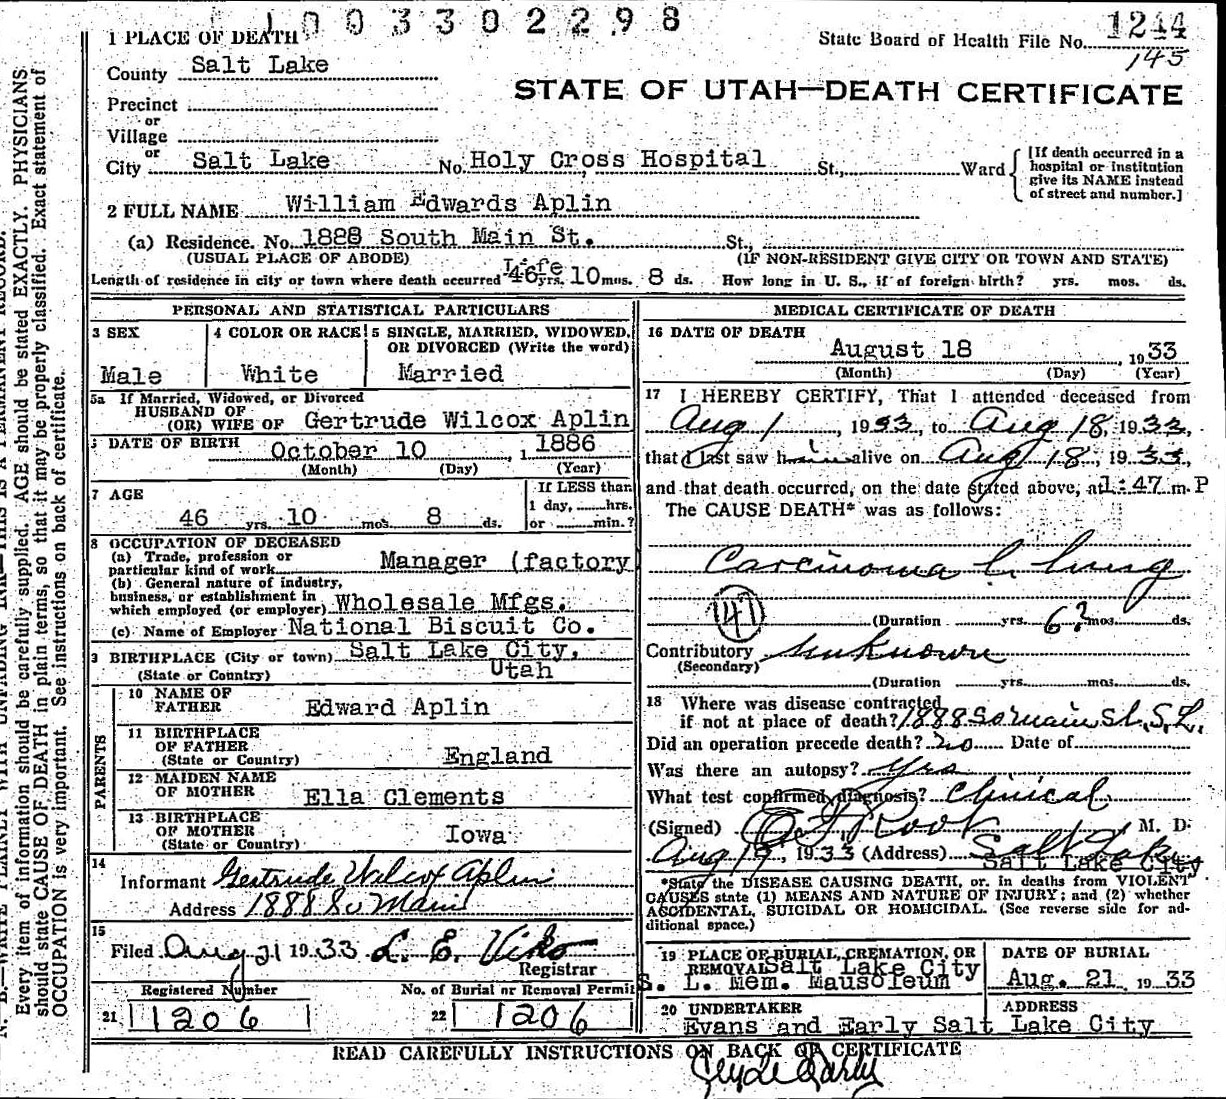 1003302298
1 PLACE OF DEATH
State Board of Health File No. 1244
145
County Salt Lake
STATE OF UTAH—DEATH CERTIFICATE
Precinct
or
Village
or
City Salt Lake No. Holy Cross Hospital St., Ward
[If death occurred in a hospital or institution give its NAME instead of street and number.]
2 FULL NAME William Edwards Aplin
(a) Residence. No. 1888 South Main St. St.,
(USUAL PLACE OF ABODE) (IF NON-RESIDENT GIVE CITY OR TOWN AND STATE)
Life
Length of residence in city or town where death occurred 46 yrs. 10 mos. 8 ds. How long in U. S., if of foreign birth? yrs. mos. ds.
PERSONAL AND STATISTICAL PARTICULARS
3 SEX
Male
4 COLOR OR RACE
White
5 SINGLE, MARRIED, WIDOWED, OR DIVORCED (Write the word)
Married
5a If Married, Widowed, or Divorced
HUSBAND OF
(OR) WIFE OF Gertrude Wilcox Aplin
DATE OF BIRTH October 10, 1886
(Month) (Day) (Year)
7 AGE
46 yrs. 10 mos. 8 ds.
If LESS than
1 day, hrs.
or min.?
8 OCCUPATION OF DECEASED
(a) Trade, profession or
particular kind of work Manager (factory
(b) General nature of industry,
business, or establishment in
which employed (or employer) Wholesale Mfgs.
(c) Name of Employer National Biscuit Co.
9 BIRTHPLACE (City or town) Salt Lake City,
(State or Country) Utah
PARENTS
10 NAME OF
FATHER Edward Aplin
11 BIRTHPLACE
OF FATHER
(State or Country) England
12 MAIDEN NAME
OF MOTHER Ella Clements
13 BIRTHPLACE
OF MOTHER
(State or Country) Iowa
14
Informant Gertrude Wilcox Aplin
Address 1888 So Main
15
Filed Aug 21 1933 L. E. Viko
Registrar
Registered Number No. of Burial or Removal Permit
21 1206 22 1206
MEDICAL CERTIFICATE OF DEATH
16 DATE OF DEATH
August 18, 1933
(Month) (Day) (Year)
17 I HEREBY CERTIFY, That I attended deceased from
Aug 1, 1933, to Aug 18, 1933,
that I last saw him alive on Aug 18, 1933,
and that death occurred, on the date stated above, at 1:47 m. P
The CAUSE DEATH* was as follows:
Carcinoma L. lung
(47)
(Duration yrs. 6? mos. ds.
Contributory unknown
(Secondary)
(Duration yrs. mos. ds.
18 Where was disease contracted
if not at place of death? 1888 So main st. S. L.
Did an operation precede death? no Date of
Was there an autopsy? yes
What test confirmed diagnosis? Clinical
(Signed) Rook M. D.
Aug 19, 1933 (Address) Salt Lake
Salt Lake City
*State the DISEASE CAUSING DEATH, or, in deaths from VIOLENT
CAUSES state (1) MEANS AND NATURE OF INJURY; and (2) whether
ACCIDENTAL, SUICIDAL OR HOMICIDAL. (See reverse side for ad-
ditional space.)
19 PLACE OF BURIAL, CREMATION, OR
REMOVAL Salt Lake City
S. L. Mem. Mausoleum
DATE OF BURIAL
Aug. 21, 1933
20 UNDERTAKER ADDRESS
Evans and Early Salt Lake City
READ CAREFULLY INSTRUCTIONS ON BACK OF CERTIFICATE
Clyde Early
N. B.—WRITE PLAINLY WITH UNFADING INK—THIS IS A PERMANENT RECORD.
Every item of information should be carefully supplied. AGE should be stated EXACTLY. PHYSICIANS
should state CAUSE OF DEATH in plain terms, so that it may be properly classified. Exact statement of
OCCUPATION is very important. See instructions on back of certificate.